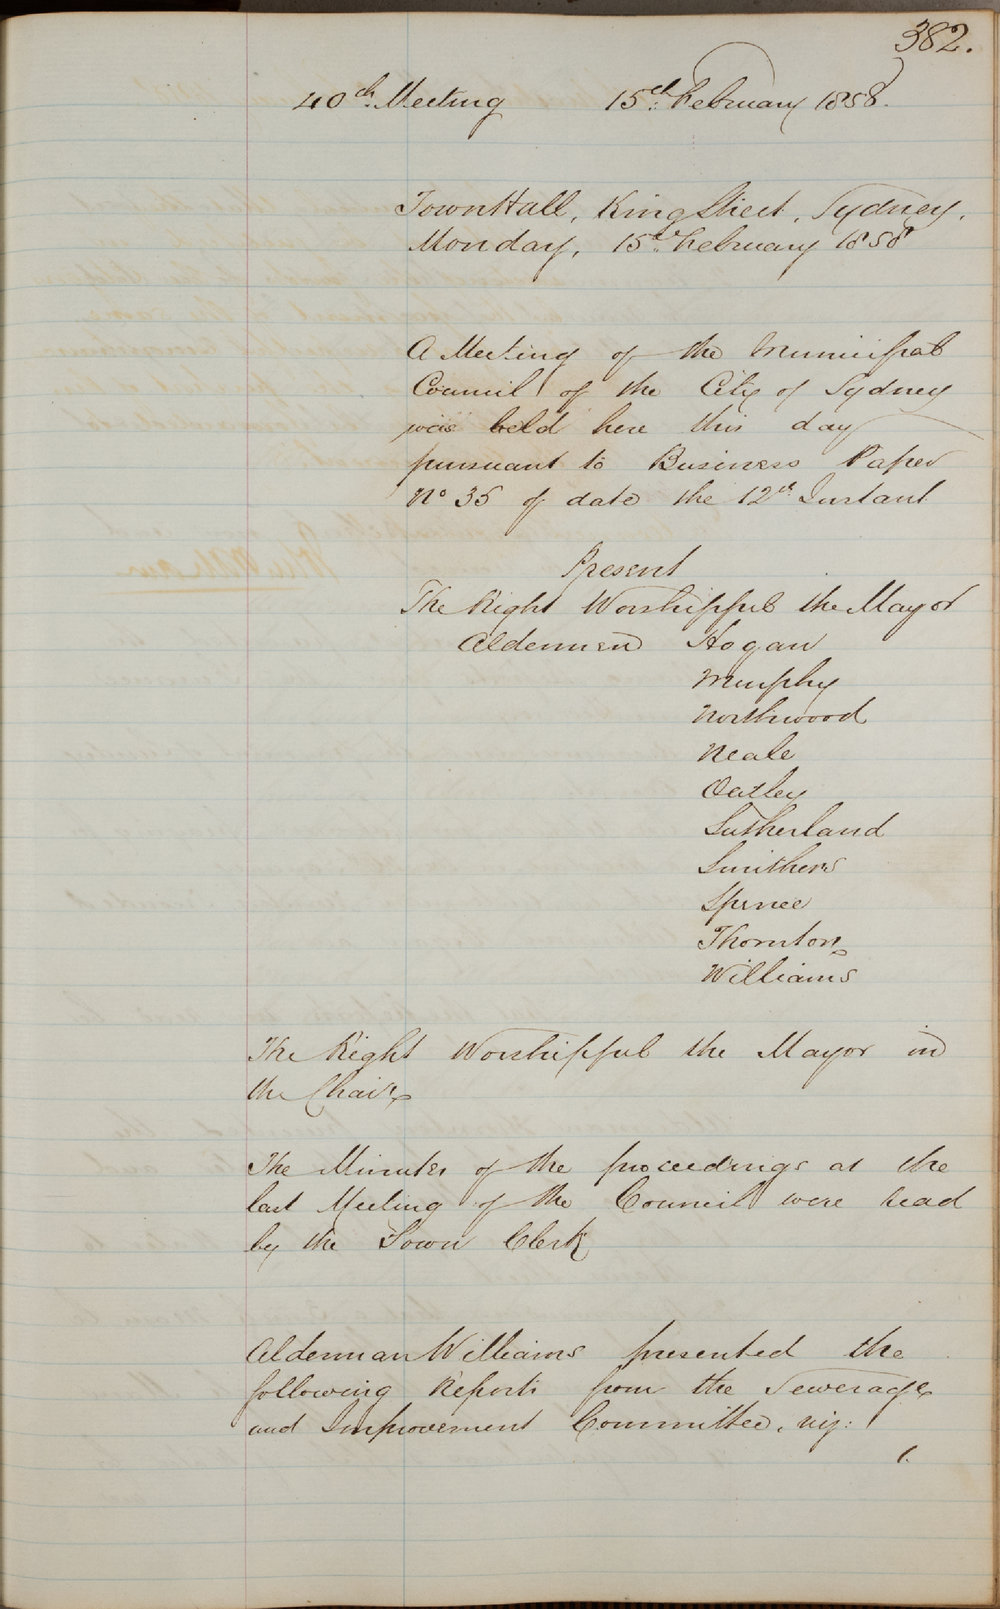 382.
40th. Meeting 15th. February 1858.
Town Hall, King Street, Sydney,
Monday, 15th. February 1858
A Meeting of the Municipal
Council of the City of Sydney
was held here this day
pursuant to Business Paper
No 35 of date the 12th Instant
Present
The Right Worshipful the Mayor
Aldermen Hogan
Murphy
Northwood
Neale
Oatley
Sutherland
Smithers
Spence
Thornton
Williams
The Right Worshipful the Mayor in
the Chair
The Minutes of the proceedings at the
last Meeting of the Council were read
by the Town Clerk
Alderman Williams presented the
following Reports from the Sewerage
and Improvement Committee, viz:
1.